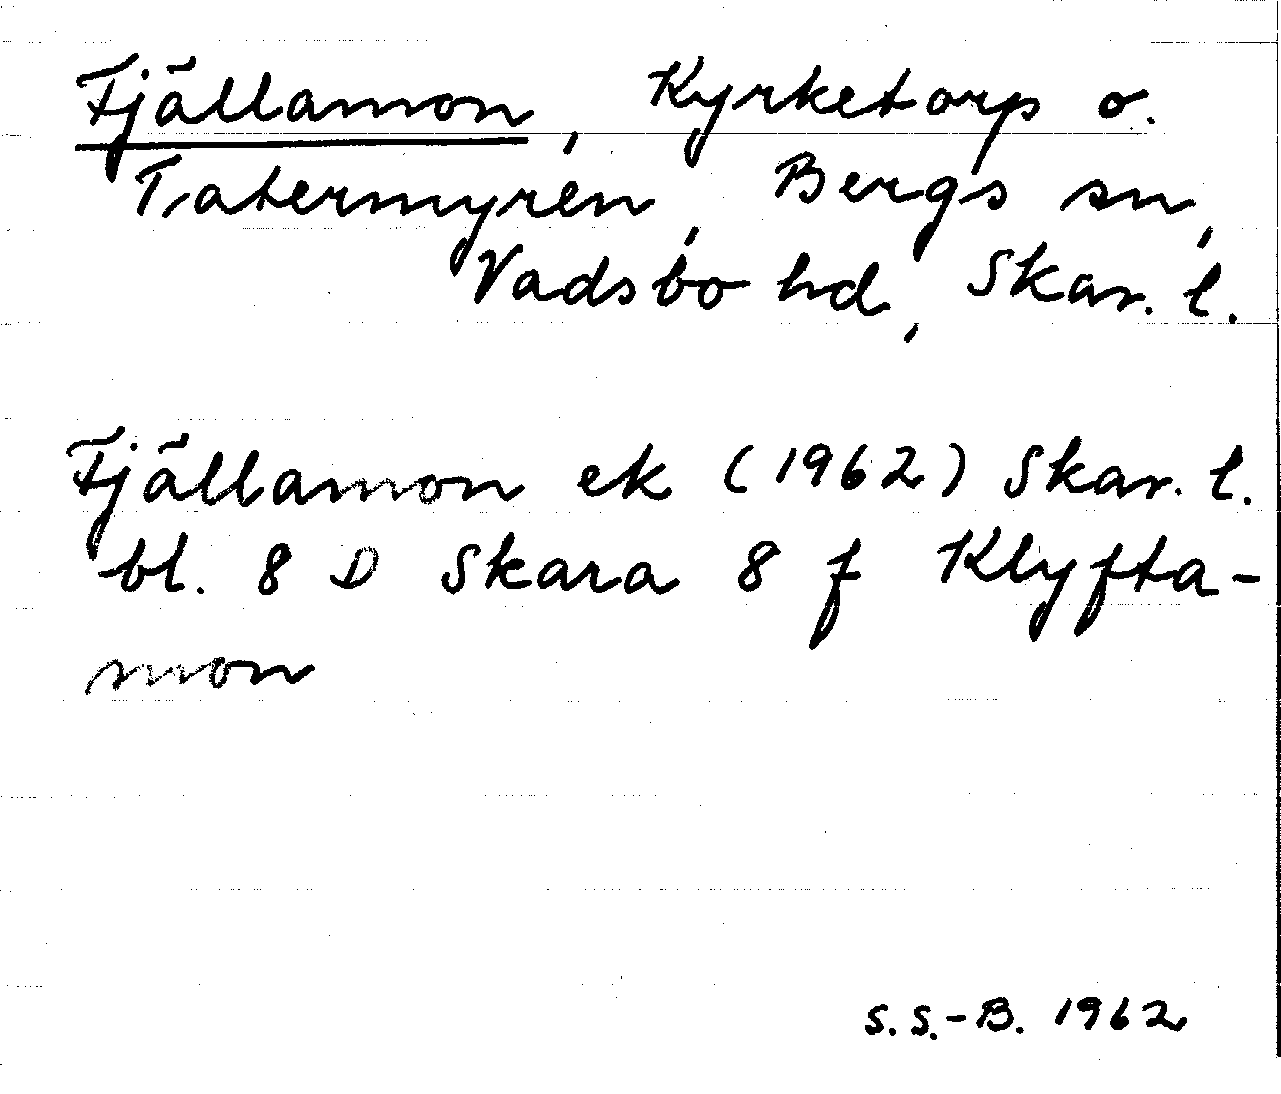 Fjällamon, Kyrketorp o.
Tatermyren, Bergs sn,
Vadsbo hd, Skar. l.
Fjällamon ek (1962) Skar. l.
bl. 8 D Skara 8 f Klyfta-
mon
S. S.-B. 1962